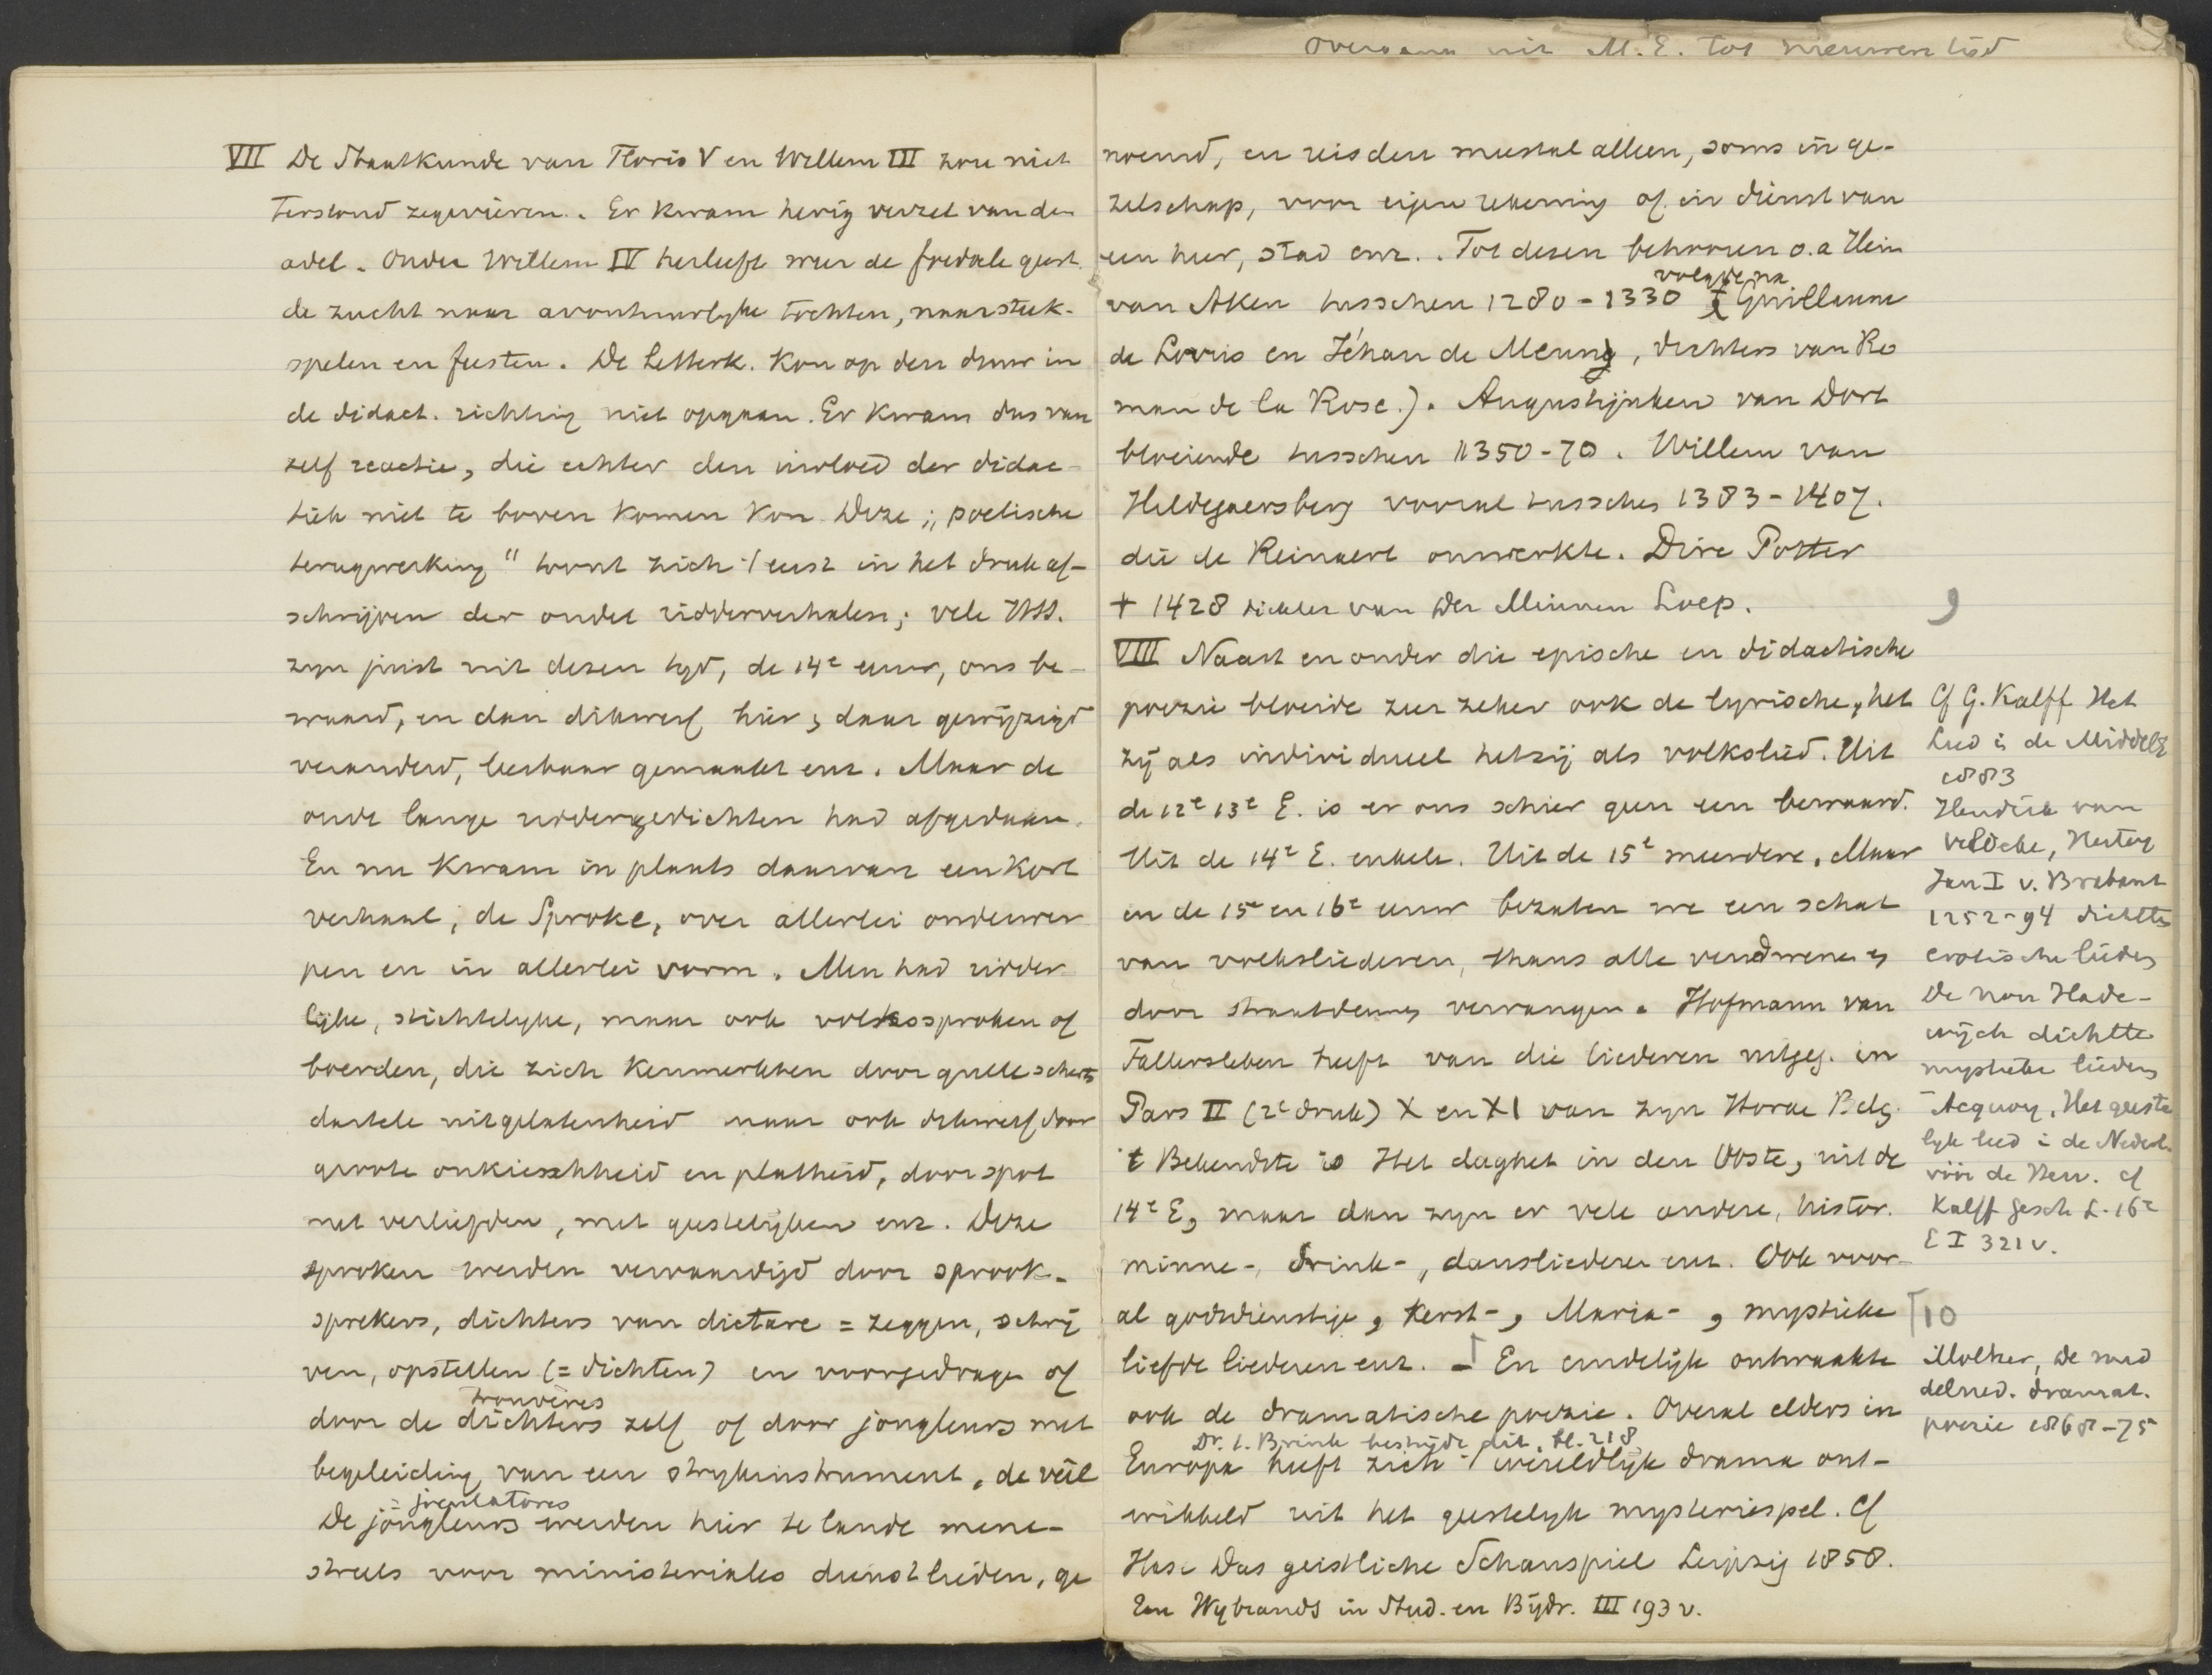 Overgang uit M.E. tot nieuwen tijd
VII De Staatkunde van Floris V en Willem III zou niet
terstond zegevieren. Er kwam hevig verzet van den
adel. Onder Willem IV herleeft weer de feodale geest
de zucht naar avontuurlyke tochten, naar steek-
spelen en feesten. De Letterk. kon op den duur in
de didact. richting niet opgaan. Er kwam dus van
zelf reactie, die echter den invloed der didac-
tiek niet te boven komen kon. Deze ,, poetische
terugwerking" toont zich 't eerst in het druk af-
schrijven der oudel ridderverhalen; vele HSS.
zyn juist uit dezen tyd, de 14e eeuw, ons be-
waard, en dan dikwerf hier & daar gewijzigd
veranderd, leesbaar gemaakt enz. Maar de
oude lange riddergedichten had afgedaan.
En nu kwam in plaats daarvan een kort
verhaal, de Sproke, over allerlei onderwer
pen en in allerlei vorm. Men had ridder
lijke, stichtelyke, maar ook volkssproken of
boerden, die zich kenmerkten door gulle scherts
dartele uitgelatenheid maar ook dikwerf door
groote onkieschheid en platheid, door spot
met verliefden, met geestelijken enz. Deze
sproken werden vervaardigd door sprook-
sprekers, dichters van dictare = zeggen, schrij
ven, opstellen (= dichten) en voorgedragen of
trouvères
door de dichters zelf of door jongleurs met
begeleiding van een strykinstrument, de veêl
joculatores
De jongleurs werden hier te lande mene-
streels voor ministeriales dienstlieden, ge
noemd, en reisden meestal alleen, soms in ge-
zelschap, voor eigen rekening of in dienst van
een heer, stad enz. . Tot dezen behooren o.a Hein
volgde na
van Aken tusschen 1280-1330 Guillaume
de Lorris en Jéhan de Meung, dichters van Ro
man de la Rose.). Augustijnken van Dort
bloeiende tusschen 1350-70. Willem van
Hildegaersberg vooral tusschen 1383-1407.
die de Reinaert omwerkte. Dirc Potter
+ 1428 dichter van Der Minnen Loep.
VIII Naast en onder die epische en didactische
poezie bloeide zeer zeker ook de lyrische, het
zij als individueel hetzij als volkslied. Uit
de 12e 13e E. is er ons schier geen een bewaard.
Uit de 14e E. enkele. Uit de 15e meerdere. Maar
in de 15e en 16e eeuw bezaten we een schat
van volksliederen, thans alle verdwenen &
door straatdeunen vervangen. Hofmann van
Fallersleben heeft van die liederen uitgeg. in
Pars II (2e druk) X en XI van zyn Horae Belg.
't Bekendste is Het daghet in den Ooste, uit de
14e E, maar dan zyn er vele andere, histor.
minne-, drink-, dansliederen enz. Ook voor-
al godsdienstige, kerst-, Maria-, mystieke
liefde liederen enz. - En eindelijk ontwaakte
ook de dramatische poezie. Overal elders in
Dr. t. Brink bestrijdt dit. bl. 218
Europa heeft zich 't wereldlijk drama ont-
wikkeld uit het geestelyk mysteriespel. Cf
Hase Das geistliche Schauspiel Leipzig 1858.
En Wybrands in Stud. en Bijdr. III 193 v.
9
Cf G. Kalff Het
Lied in de Middel E
1883
Hendrik van
Veldeke, Hertog
Jan I v. Brabant
1252-94 dichtte
erotische liederen
De non Hade-
wijch dichtte
mystieke liederen
Acquoy, Het geeste
lyk lied in de Nederl.
vóór de Herv. cf
Kalff Gesch L. 16e
E I 321 v.
10
Molkzer, De mid
delned. dramat.
poezie 1868-75